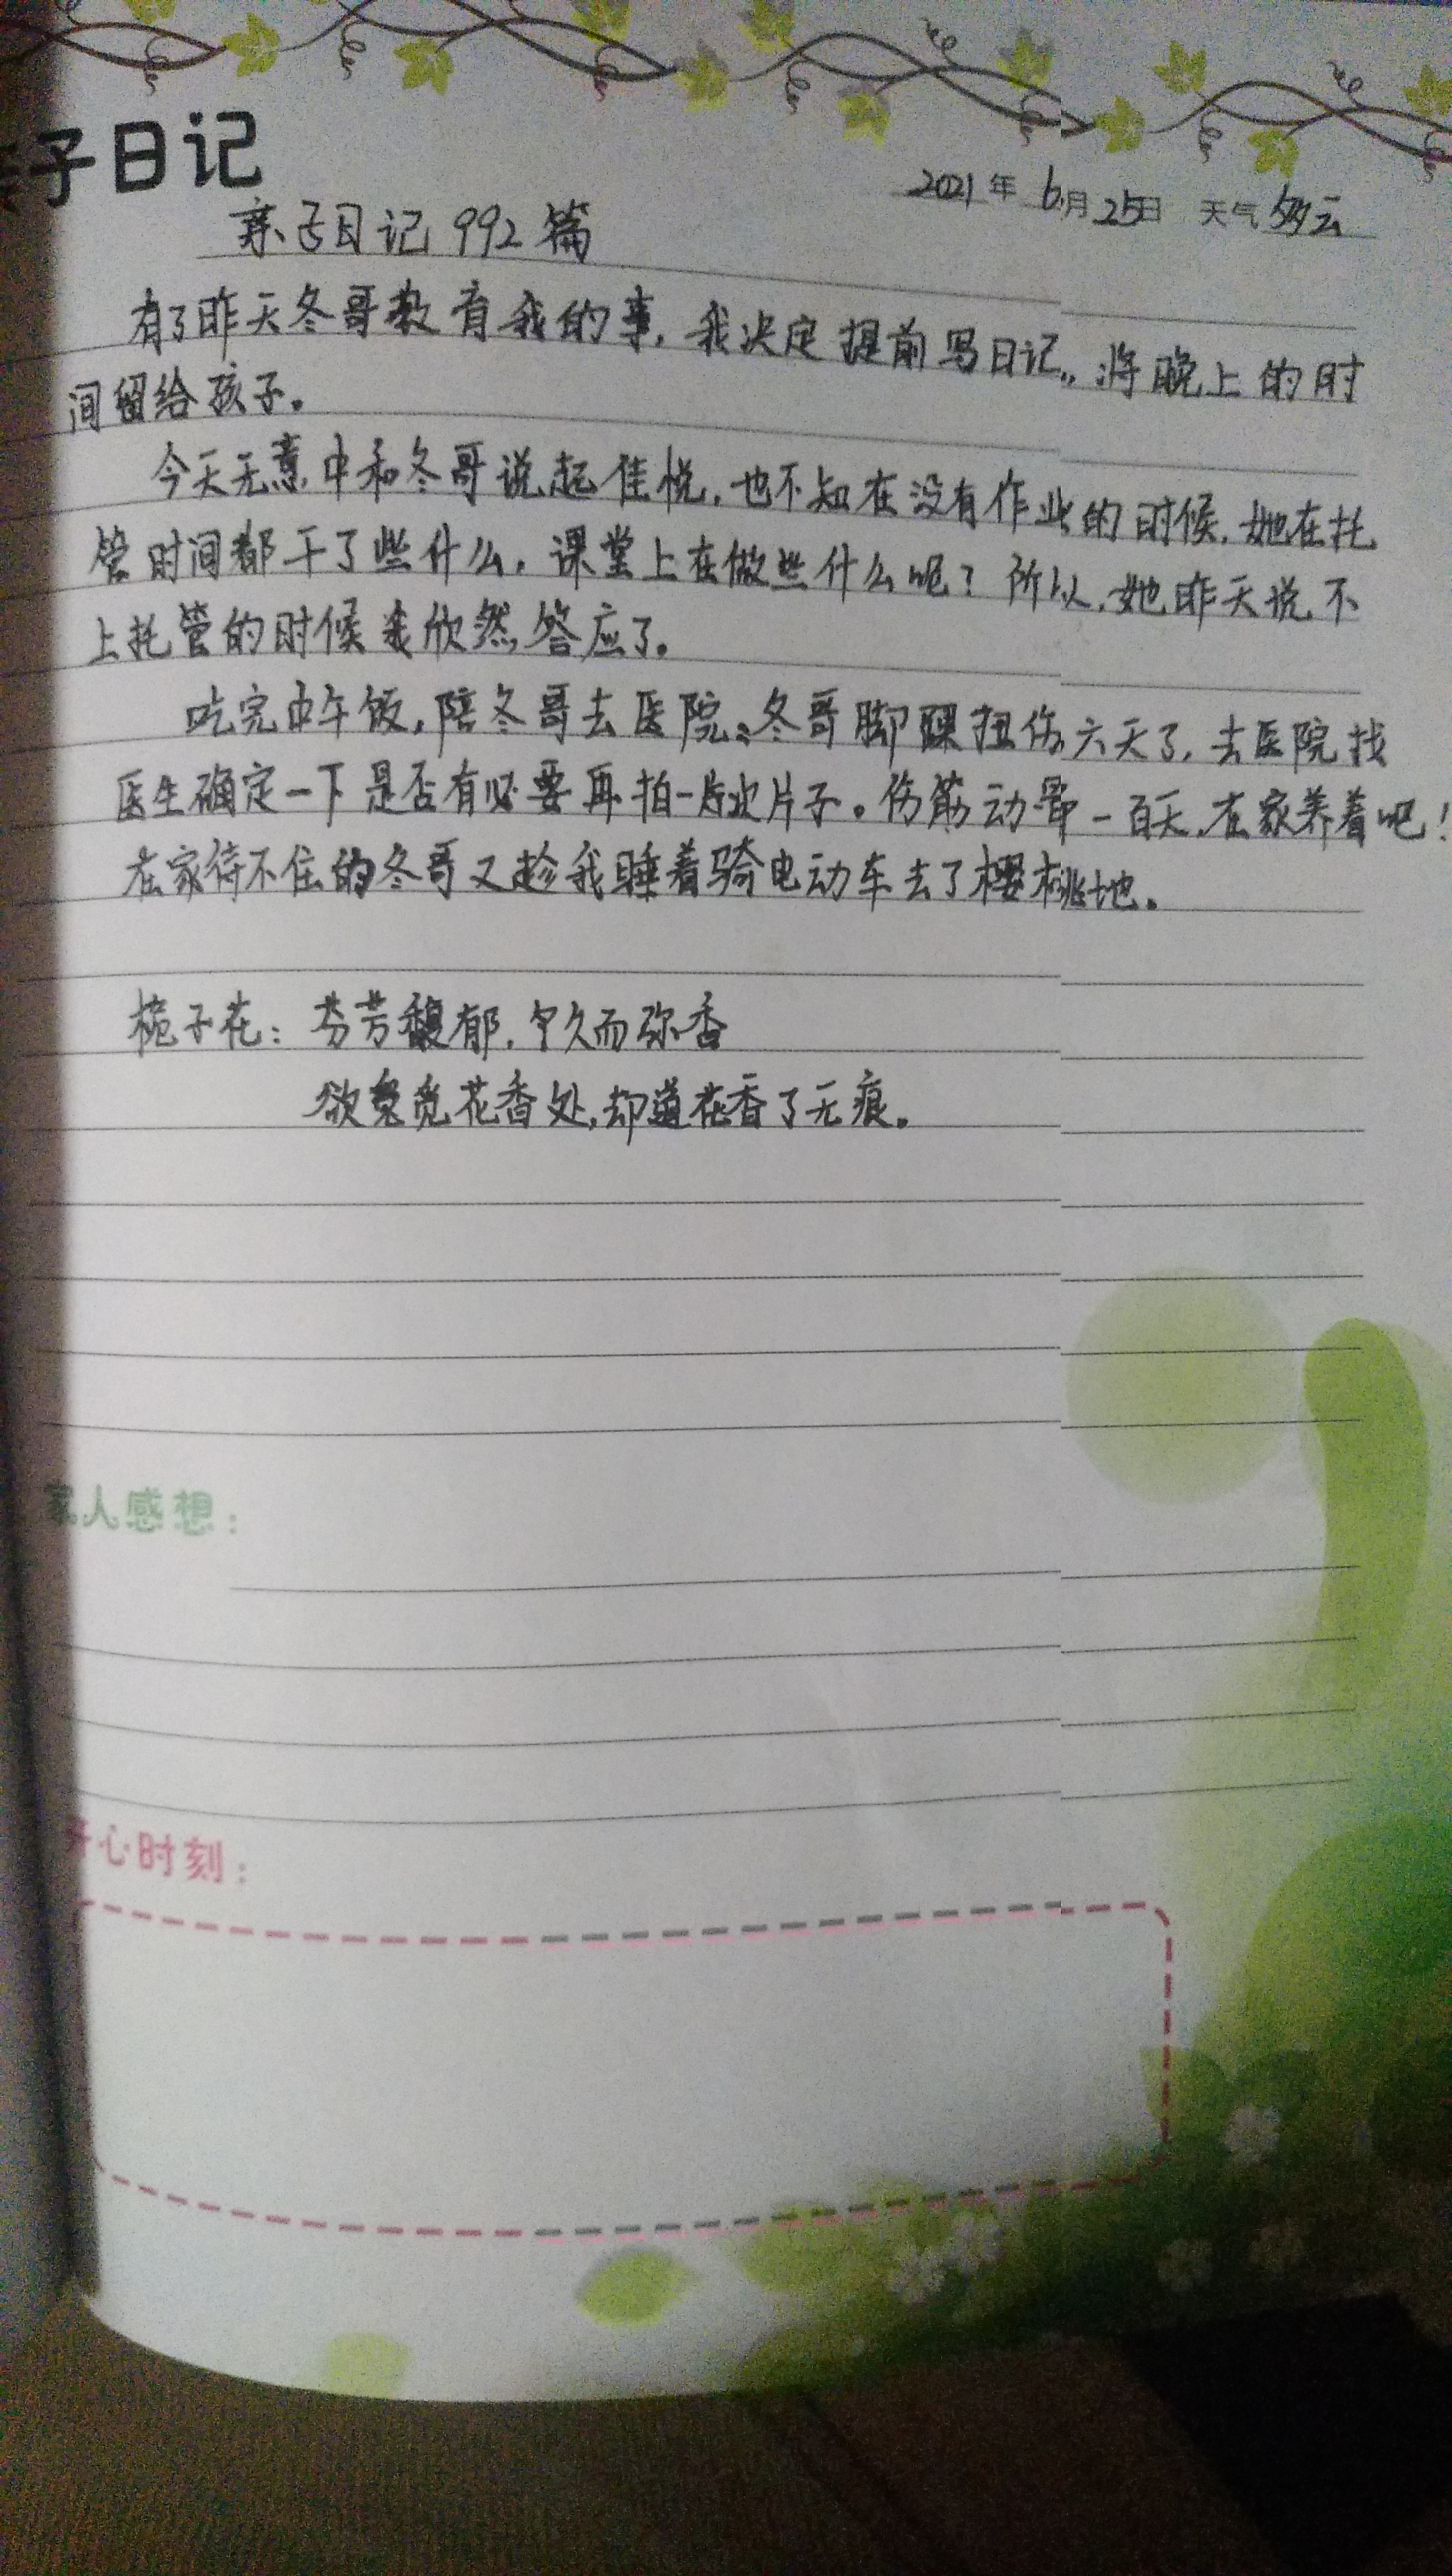 子日记
2021年6月25日 天气多云
亲子日记992篇
有了昨天冬哥教育我的事,我决定提前写日记,将晚上的时
间留给孩子。
今天无意中和冬哥说起佳悦,也不知在没有作业的时候,她在托
管时间都干了些什么,课堂上在做些什么呢?所以,她昨天说不
上托管的时候我欣然答应了。
吃完中午饭,陪冬哥去医院,冬哥脚踝扭伤六天了,去医院找
医生确定一下是否有必要再拍一次片子。伤筋动骨一百天,在家养着吧!
在家待不住的冬哥又趁我睡着骑电动车去了樱桃地。
栀子花:芬芳馥郁,久而弥香
欲觅花香处,却道花香了无痕。
家人感想:
开心时刻: